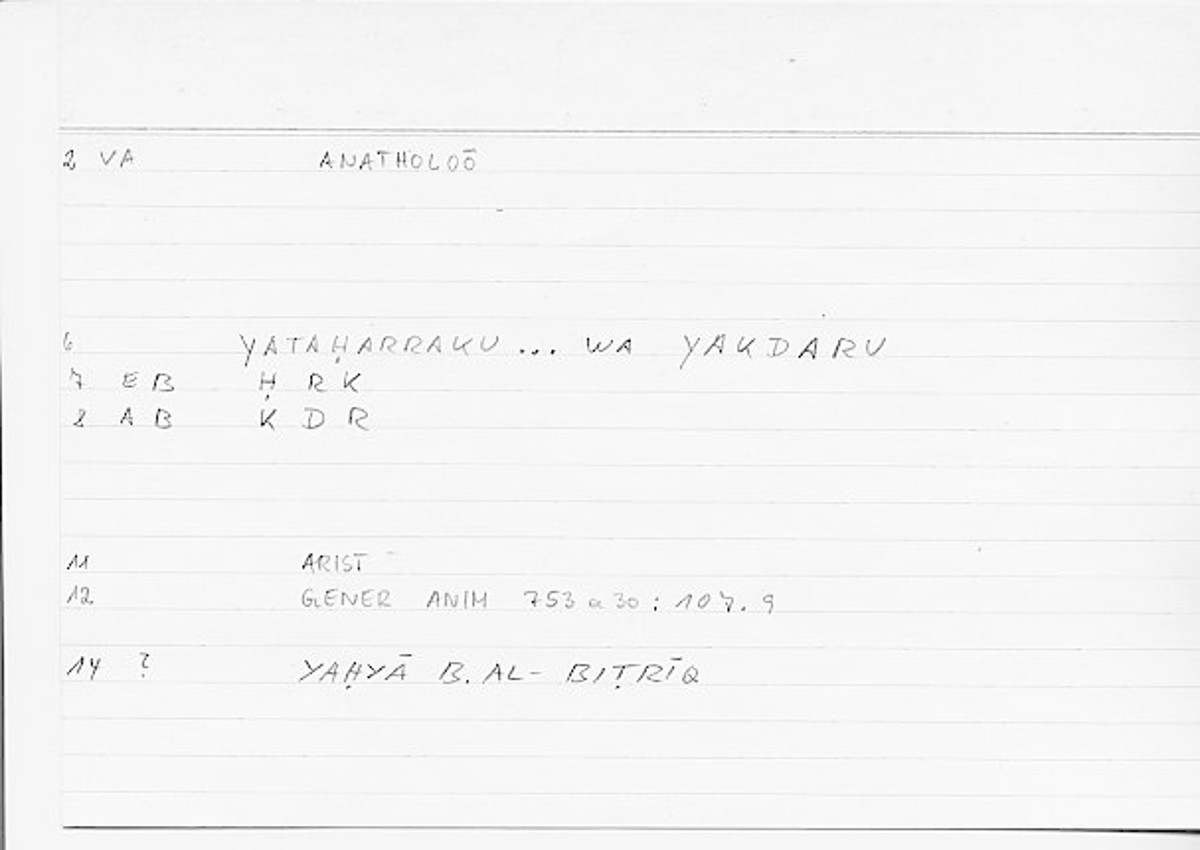 2 VA ANATHOLOŌ
6 YATAḤARRAKU ... WA YAKDARU
7 EB Ḥ R K
8 AB K D R
11 ARIST
12 GENER ANIM 753 a 30 : 107.9
14 ? YAḤYĀ B. AL- BIṬRĪQ